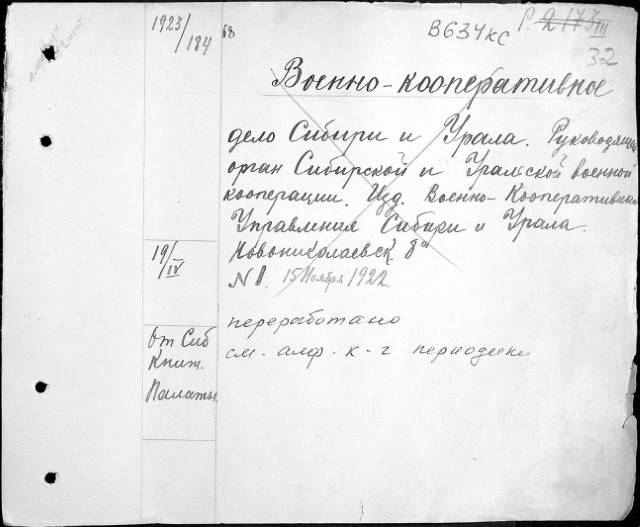 1923/184
68
В634кс
Р. 2 173 III
32
Военно-кооперативное
дело Сибири и Урала. Руководящий
орган Сибирской и Уральской военной
кооперации. Изд. Военно-Кооперативного
Управления Сибири и Урала.
19/IV
Новониколаевск 8°
N 1. 15 Ноября 1922.
От Сиб
Книж.
Палаты.
переработано
см. алф. к-г периодики